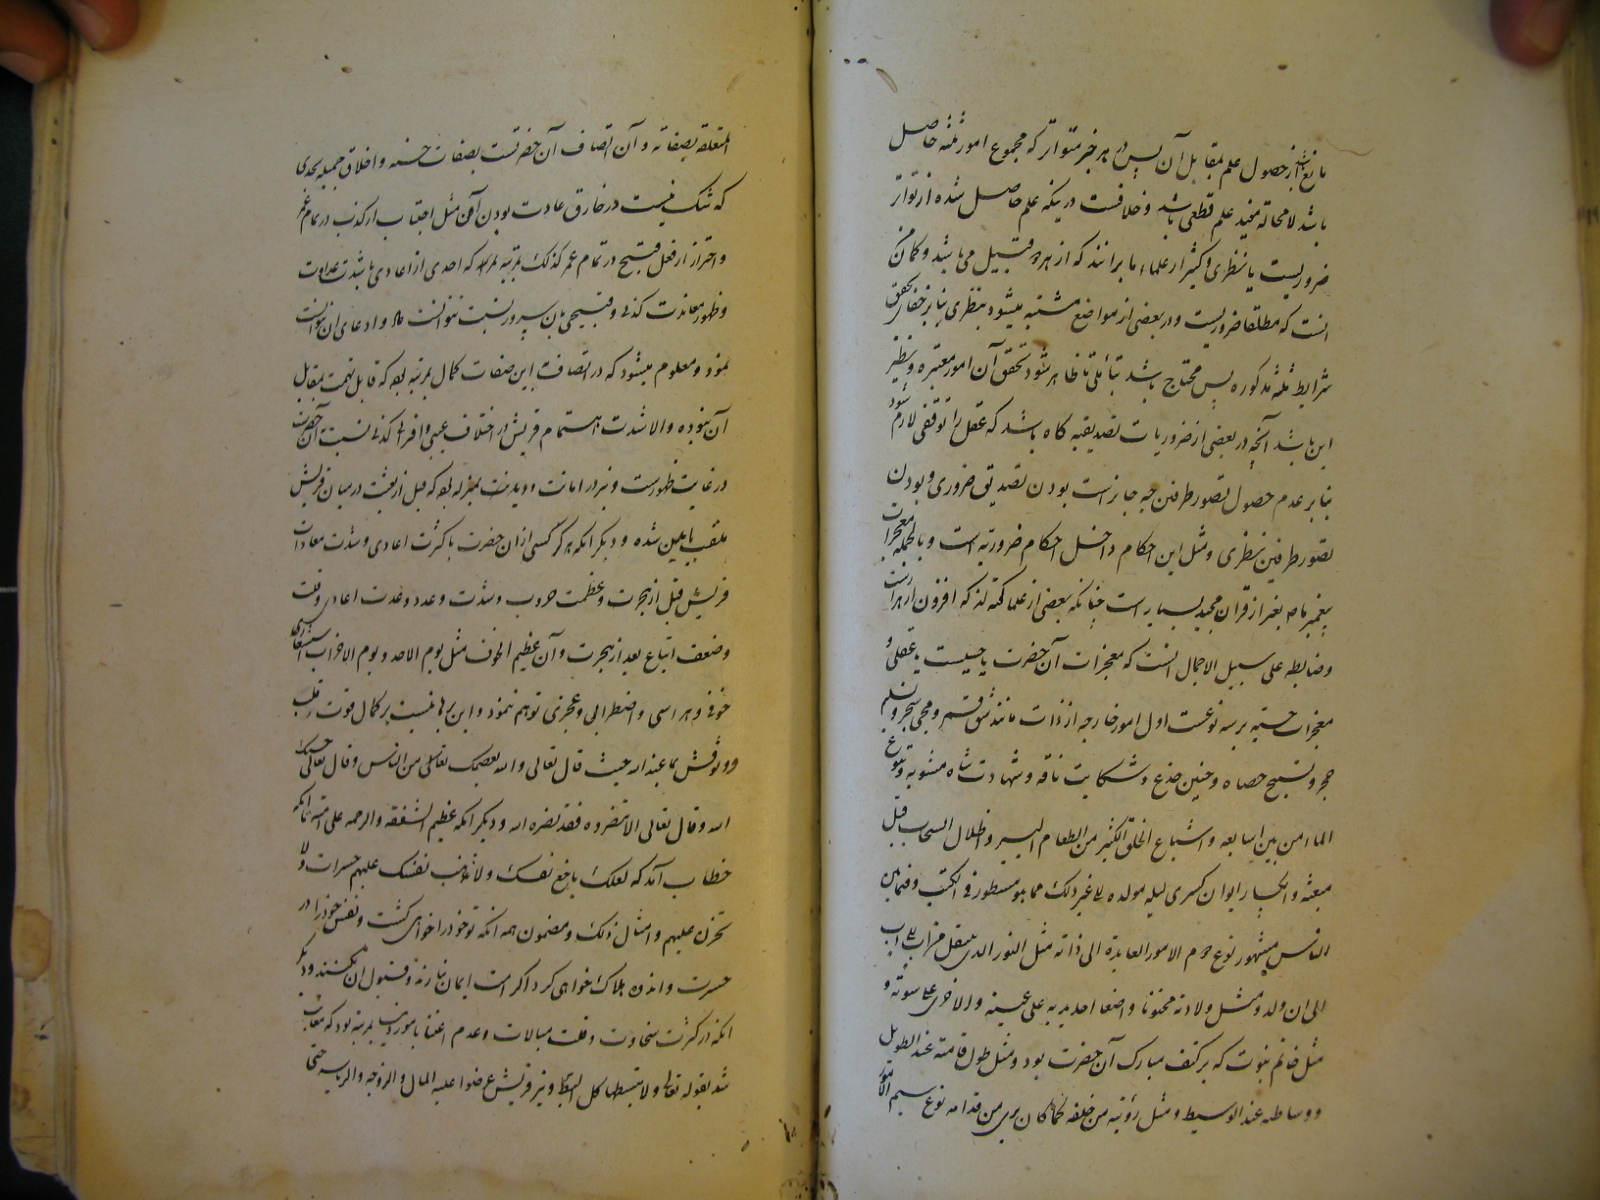 مانع است از حصول علم بمقابل آن پس در هر خبر متواتر که مجموع امور ثلثه حاصل
باشد لامحاله مفید علم قطعی باشد و خلافست در ینکه علم حاصل شده از تواتر
ضروریست یا نظری و کثیر از علماء ما برانند که از هر دو قبیل می باشد و کمان من
انست که مطلقا ضروریست و در بعضی از مواضع مشتبه میشود بنظری بنا بر خفای تحقق
شرایط ثلثه مذکوره پس محتاج باشد بتأملی تا ظاهر شود تحقق آن امور معتبره و نظیر
این باشد آنچه در بعضی از ضروریات تصدیقیه کاه باشد که عقل را توقفی لازم شود
بنا بر عدم حصول تصور طرفین چه جایز است بودن تصدیق ضروری و بودن
تصور طرفین نظری و مثل این احکام داخل احکام ضروریه است و بالجمله معجزات
پیغمبر ما صه بغیر از قران مجید بسیار است چنانکه بعضی از علما کفته اند که افزون از هزار است
و ضابطه علی سبیل الاجمال انست که معجزات آن حضرت یا حسیست یا عقلی و
معجزات حسیه بر سه نوعست اول امور خارجه از ذات مانند شق قمر و مجی شجر و تسلیم
حجر و تسبیح حصاه و حنین جذع و شکایت ناقه و شهادت شاه مشویه و نبوع
الماء من بین اصابعه و اشباع الخلق الکثیر من الطعام الیسیر و اظلال السحاب قبل
مبعثه و انکسار ایوان کسری لیله مولده الی غیر ذلک مما هو مسطور فی الکتب و فیما بین
الناس مشهور نوع دوم الامور العایدة الی ذاته مثل النور الذی ینتقل من اب الی اب
الی ان ولد و مثل ولادته مختونا و اضعا احدی یدیه علی عینیه و الاخری علی سوته و
مثل خاتم نبوت که بر کتف مبارک آن حضرت بود و مثل طول قامته عند الطویل
و وساطه عند الوسیط و مثل رؤیته من خلفه کما کان یری من قدامه نوع سیم الامور
المتعلقه بصفاته و آن اتصاف آن حضرتست بصفات حسنه و اخلاق جمیله بحدی
که شک نیست در خارق عادت بودن آن مثل اجتناب از کذب در تمام عمر
و احتراز از فعل قبیح در تمام عمر کذلک بمرتبه که احدی از اعادی باشدت عداوت
و ظهور معاندت کذبی و قبیحی بان سرور نسبت نتوانست داد و ادعای ان نتوانست
نمود و معلوم میشود که در اتصاف باین صفات کمال بمرتبه بوده که قابل تهمت بمقابل
آن نبوده و الا شدت اهتمام قریش در اختلاف عیبی و افرای کذبی نسبت بآن حضرت
در غایت ظهورست و نیز در امانت و دیانت بمنزله بوده که قبل از بعثت در میان قریش
ملقب بامین شده و دیکر انکه هرکز کسی از ان حضرت با کثرت اعادی و شدت معادات
قریش قبل از هجرت و عظمت حروب و شدت و عدد و عدت اعادی و قلت
و ضعف اتباع بعد از هجرت و آن عظیم الخوف مثل یوم الاحد و یوم الاحزاب
خوفی و هراسی و اضطرابی و عجزی توهم ننمود و این برهانیست بر کمال قوت قلب
و وثوقش بما عند الله حیث قال تعالی و الله یعصمک من الناس و قال تعالی حسبک
الله و قال تعالی الا تنصروه فقد نصره الله و دیکر انکه عظیم الشفقه و الرحمه علی امته تا آنکه
خطاب آمد که لعلک باخع نفسک و لا تذهب نفسک علیهم حسرات و لا
تحزن علیهم و امثال ذلک و مضمون همه انکه تو خود را خواهی کشت و نفس خود را در
حسرت و اندوه هلاک خواهی کرد اکر امت ایمان نیارند و قبول آن نکنند و دیکر
انکه در کثرت سخاوت و قلت مبالات و عدم اعتنا بامور دنیا بمرتبه بود که معاتب
شد بقوله تعالی و لا تبسطها کل البسط و نیز قریش عرضوا علیه المال و الزوجه و الریاسه حتی